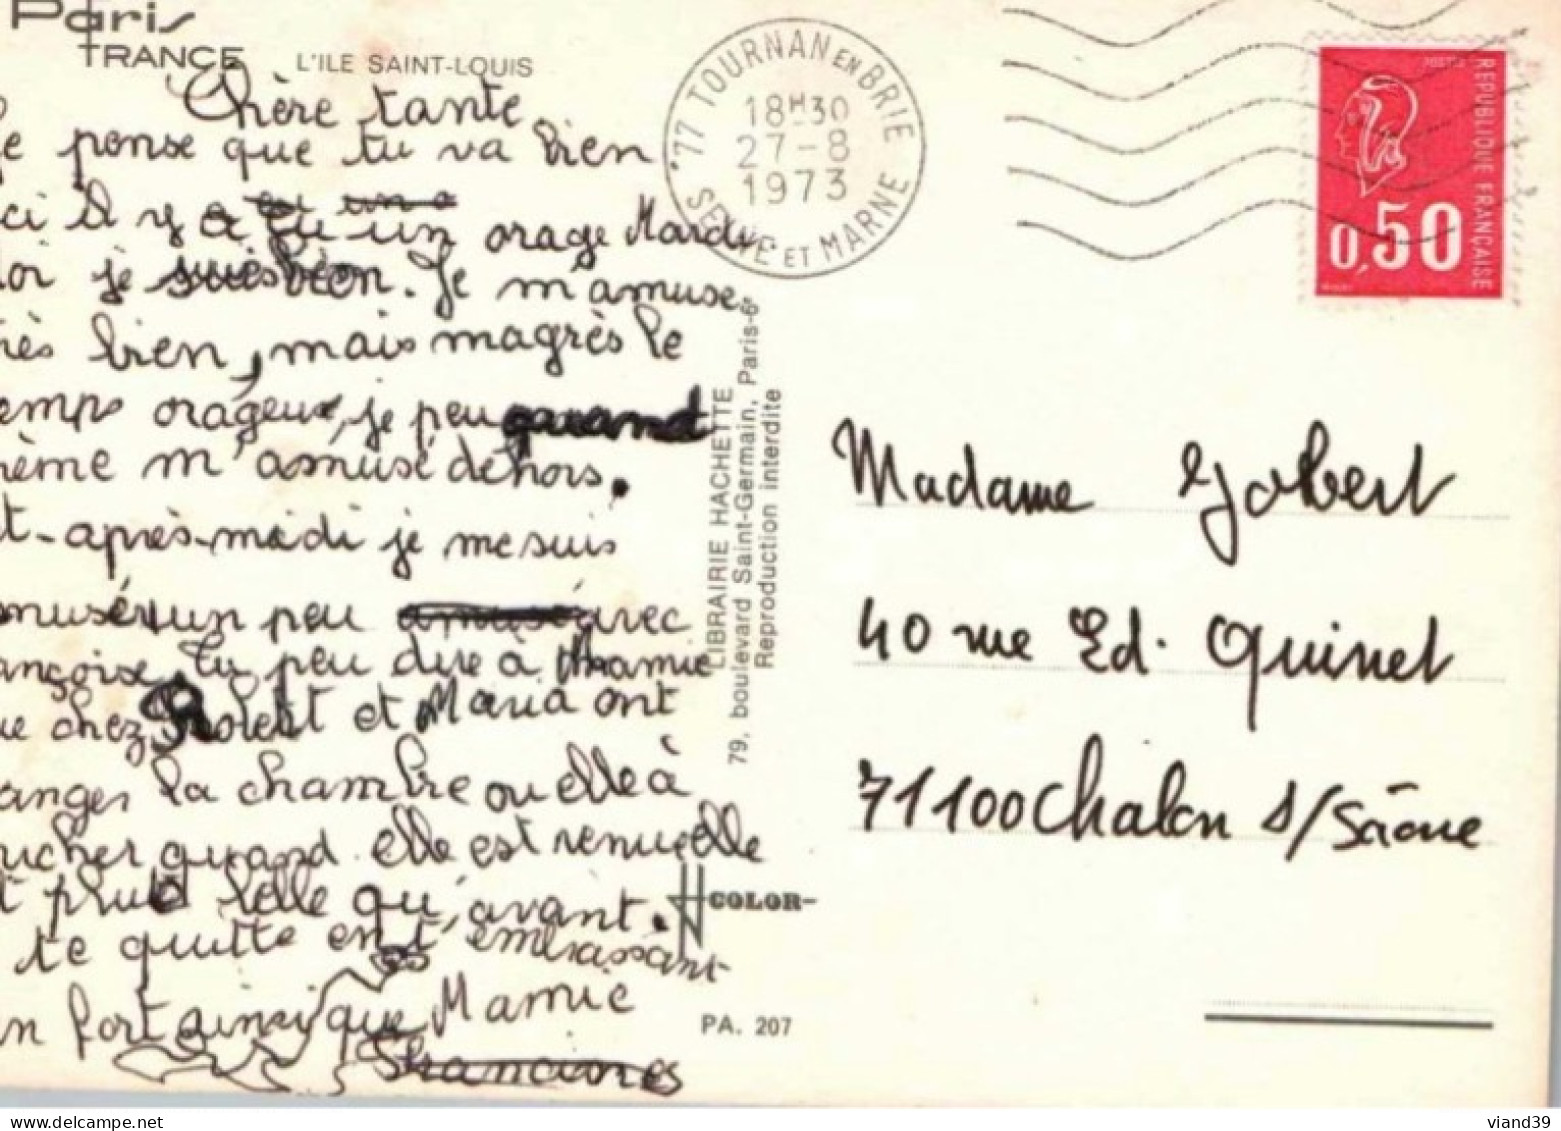 Paris
FRANCE
L'ILE SAINT-LOUIS
Chère tante
e pense que tu va bien
ci il y a eu un orage Mardi.
oi je suis bien. Je m'amuse
rès bien, mais magrès le
emps orageux, je peu quand
même m'amusé dehors.
t-après-midi je me suis
musér un peu avec
ançoise. Tu peu dire à Mamie
ue chez Robert et Maria ont
anger la chambre ou elle à
oucher quand elle est venu elle
t plus belle qu'avant.
te quitte en t'embrassant
n fort ainsi que Mamie
Francine
77 TOURNAN EN BRIE
18H30
27-8
1973
SEINE ET MARNE
LIBRAIRIE HACHETTE
79, boulevard Saint-Germain, Paris-6e
Reproduction interdite
COLOR
PA. 207
POSTES
REPUBLIQUE FRANÇAISE
0,50
Madame Jobert
40 rue Ed. Quinet
71100 Chalon s/Saône
viand39